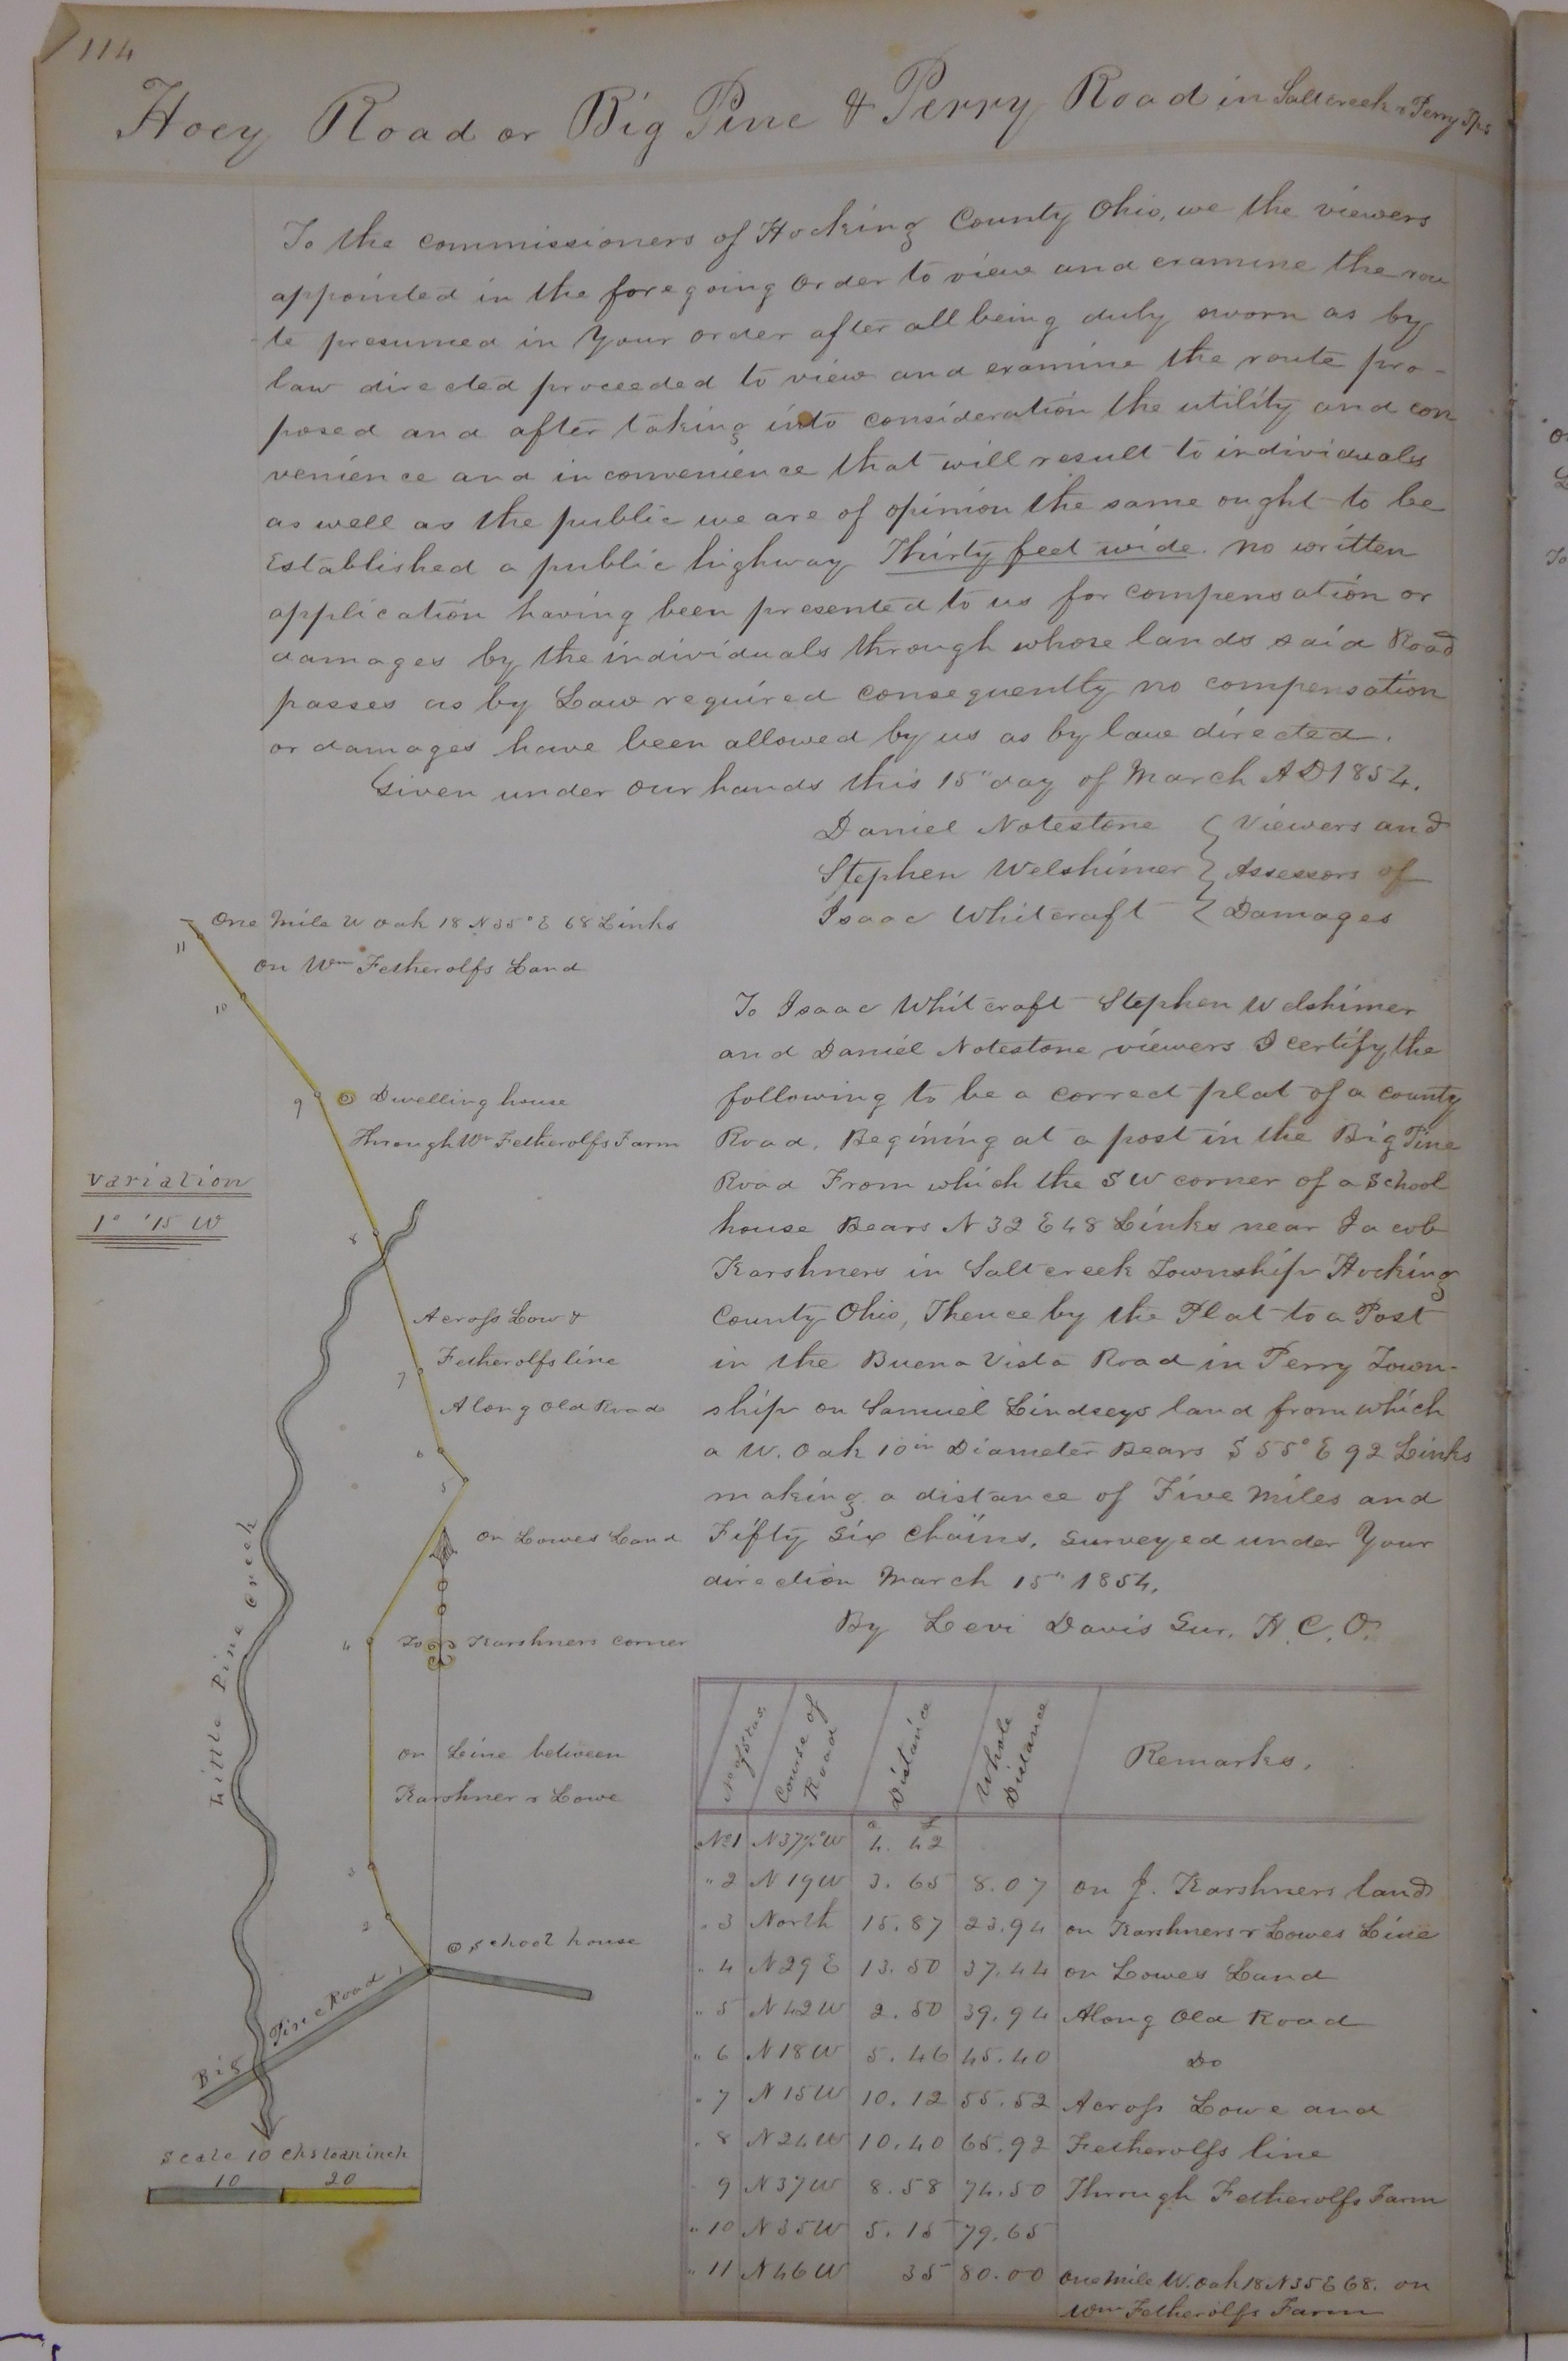 114
Hoey Road or Big Pine & Perry Road in Saltcreek & Perry Tps
To the commissioners of Hocking County Ohio, we the viewers
appointed in the foregoing order to view and examine the rou
te presumed in Your order after all being duly sworn as by
law directed proceeded to view and examine the route pro-
posed and after taking into consideration the utility and con
venience and inconvenience that will result to individuals
as well as the public we are of opinion the same ought to be
Established a public highway Thirty feet wide. no written
application having been presented to us for compensation or
damages by the individuals through whose lands said Road
passes as by Law required consequently no compensation
or damages have been allowed by us as by law directed.
Given under our hands this 15" day of March AD 1854.
Daniel Notestone { Viewers and
Stephen Welshimer } Assessors of
Isaac Whitcraft { Damages
One Mile W Oak 18 N35°E 68 Links
on Wm Fetherolfs Land
11
10
9
Dwelling house
Through Wm Fetherolfs Farm
variation
1° '15 W
8
Across Low &
Fetherolfs line
7
Along Old Road
6
5
on Lowes Land
4
To Karshners corner
Little Pine Creek
on Line between
Karshner & Lowe
3
2
School house
1
Big Pine Road
Scale 10 chs to an inch
10 20
To Isaac Whitcraft Stephen Welshimer
and Daniel Notestone viewers I certify the
following to be a correct plat of a county
Road. Begining at a post in the Big Pine
Road From which the SW corner of a School
house Bears N 32 E 48 Links near Jacob
Karshners in Saltcreek Township Hocking
County Ohio, Thence by the Plat to a Post
in the Buena Vista Road in Perry Town-
ship on Samuel Lindseys land from which
a W. Oak 10in Diameter Bears S 55° E 92 Links
making a distance of Five Miles and
Fifty Six Chains. Surveyed under Your
direction March 15" 1854.
By Levi Davis Sur. H. C. O.
No of Stas. Course of Road Distance Whole Distance Remarks.
c L
No 1 N37½°W 4. 42
" 2 N 19 W 3. 65 8. 07 on J. Karshners land
" 3 North 15. 87 23. 94 on Karshners & Lowes Line
" 4 N 29 E 13. 50 37. 44 on Lowes Land
" 5 N 42 W 2. 50 39. 94 Along Old Road
" 6 N 18 W 5. 46 45. 40 Do
" 7 N 15 W 10. 12 55. 52 Across Lowe and
" 8 N 24 W 10. 40 65. 92 Fetherolfs line
" 9 N 37 W 8. 58 74. 50 Through Fetherolfs Farm
" 10 N 35 W 5. 15 79. 65
" 11 N 46 W 35 80. 00 One Mile W. Oak 18 N35 E 68. on
Wm Fetherolfs Farm